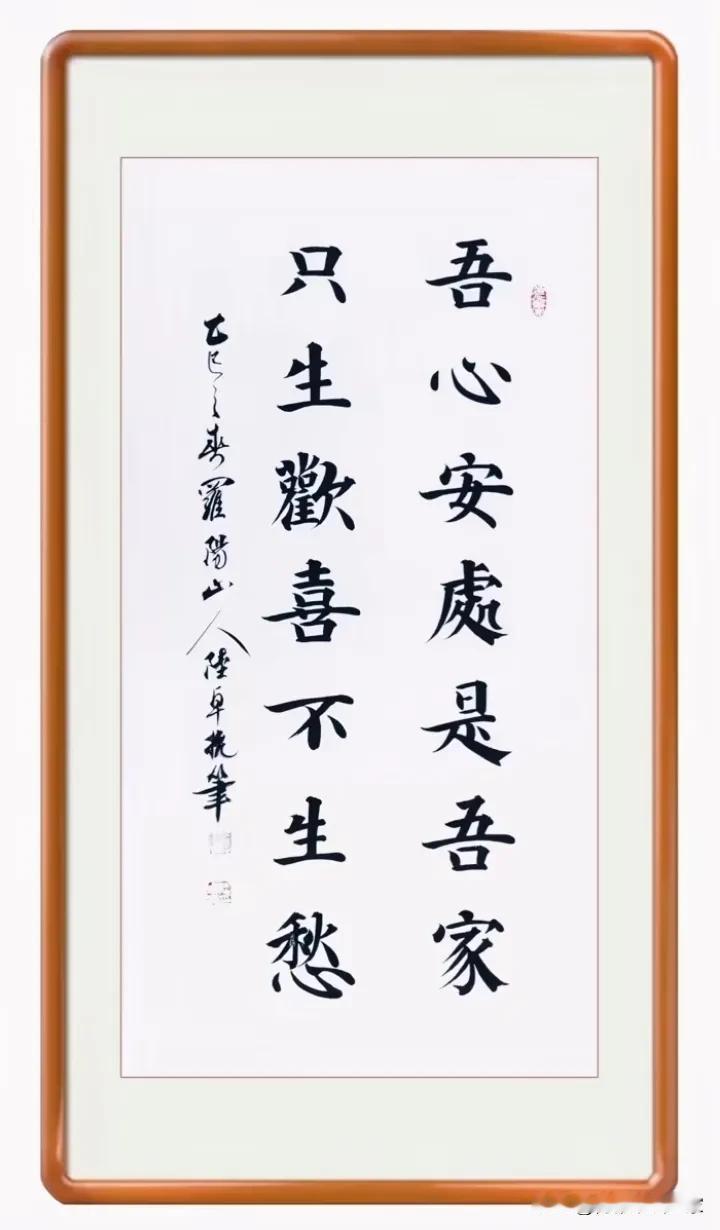 吾心安處是吾家
只生歡喜不生愁
乙巳之春羅陽山人陸卓攬筆